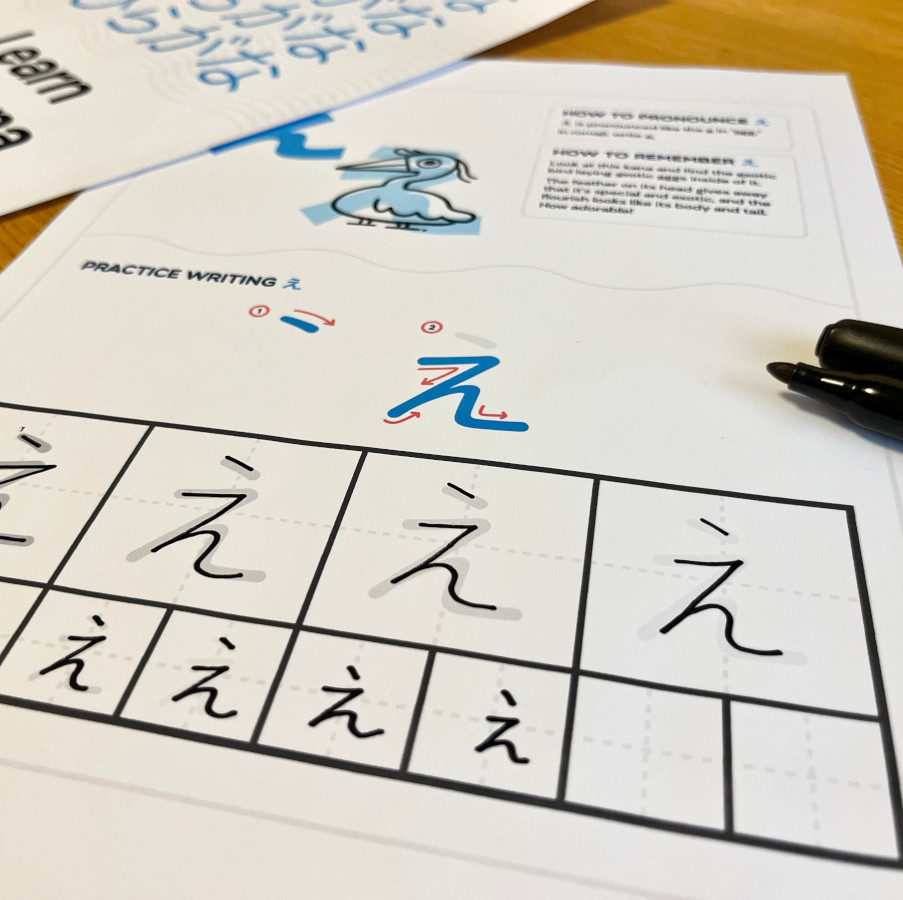 らがな
らがな
learn
na
HOW TO PRONOUNCE え
HOW TO REMEMBER え
Look at this kana and find the exotic
bird laying exotic eggs inside of it.
The feather on its head gives away
that it's special and exotic, and the
flourish looks like its body and tail.
How adorable!
PRACTICE WRITING え
1 2
え
え え え え
え え え え